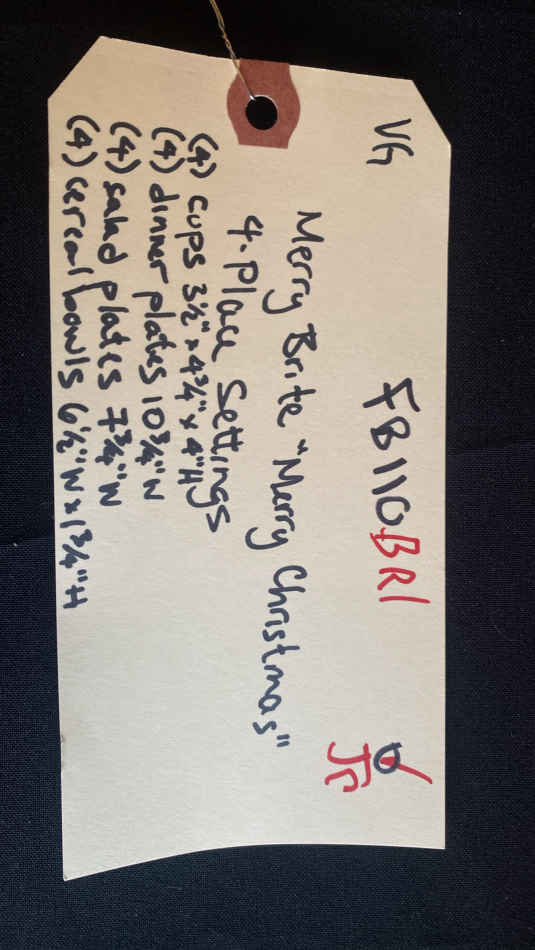 VG FB110BR1
Merry Brite "Merry Christmas"
4-Place Settings
(4) cups 3½" x 4¾" x 4"H
(4) dinner plates 10¾"W
(4) salad plates 7¾"W
(4) cereal bowls 6½"W x 1¾"H